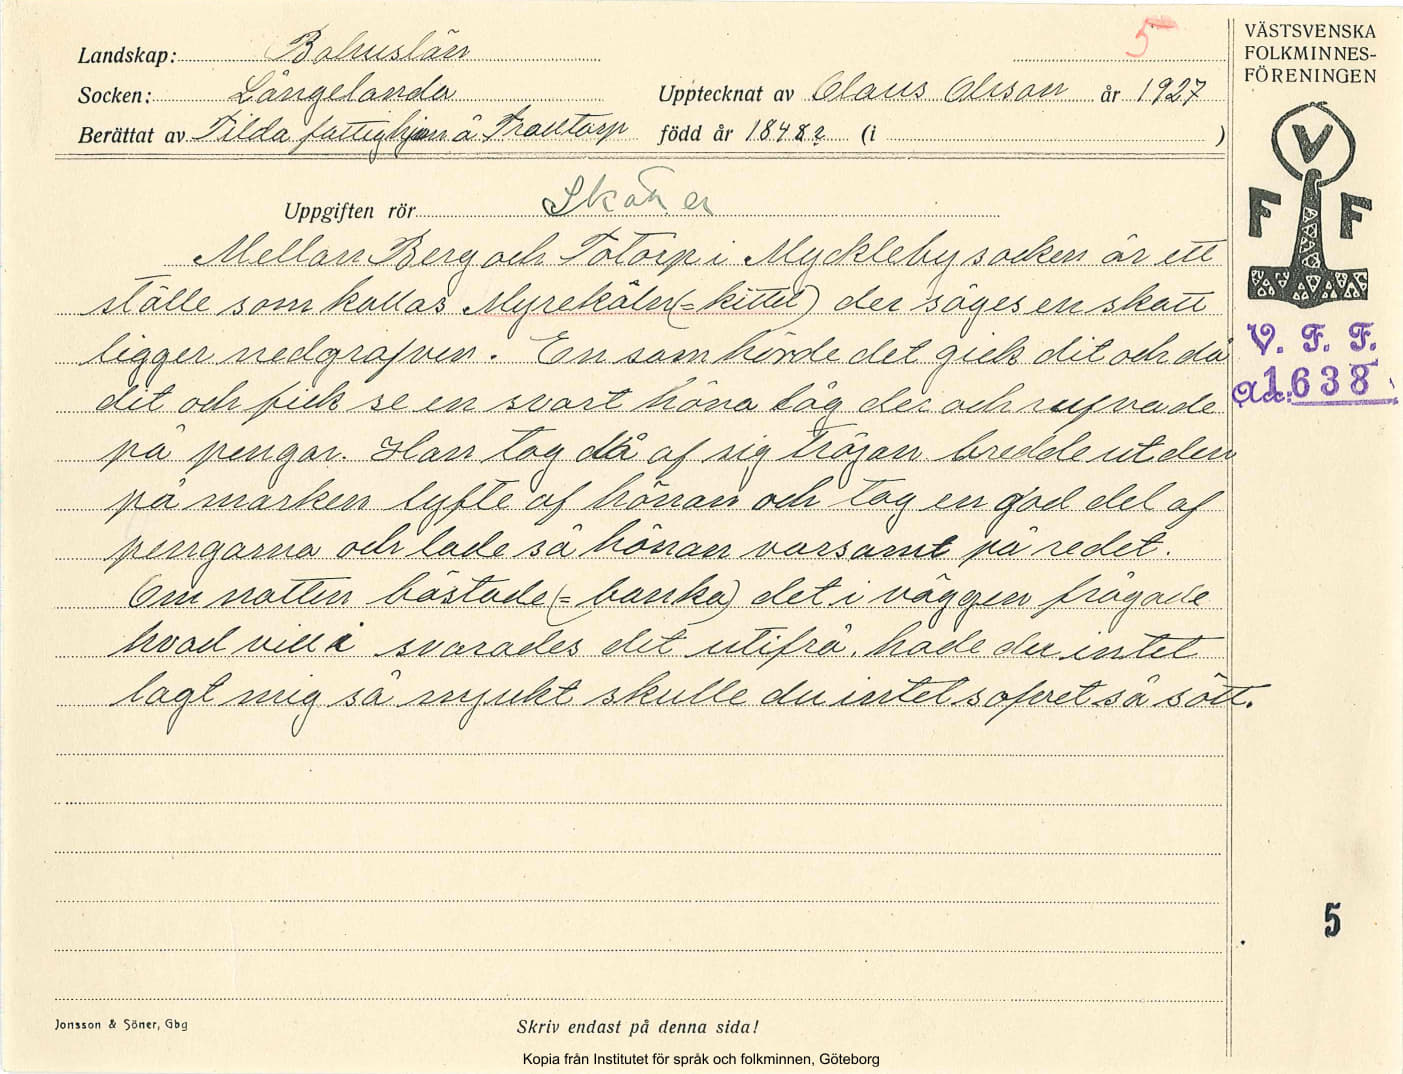 5
VÄSTSVENSKA
FOLKMINNES-
FÖRENINGEN
V
F F
V. F. F.
Acc: 1638
Landskap: Bohuslän
Socken: Långelanda Upptecknat av Claus Olsson år 1927
Berättat av Tilda fattighjon å Trättorp född år 1848? (i )
Uppgiften rör Skatter
Mellan Berg och Totorp i Myckleby socken är ett
ställe som kallas Myrekäln (= kittel) der säges en skatt
ligger nedgrafven. En som hörde det gick dit och då
dit och fick se en svart höna låg der och rufvade
på pengar. Han tog då af sig tröjan bredde ut den
på marken lyfte af hönan och tog en god del af
pengarna och lade så hönan varsamt på redet.
Om natten bästade (= banka) det i väggen frågade
hvad vill i svarades det utifrå, hade du intet
lagt mig så mjukt skulle du intet sofvet så sött.
5
Jonsson & Söner, Gbg
Skriv endast på denna sida!
Kopia från Institutet för språk och folkminnen, Göteborg